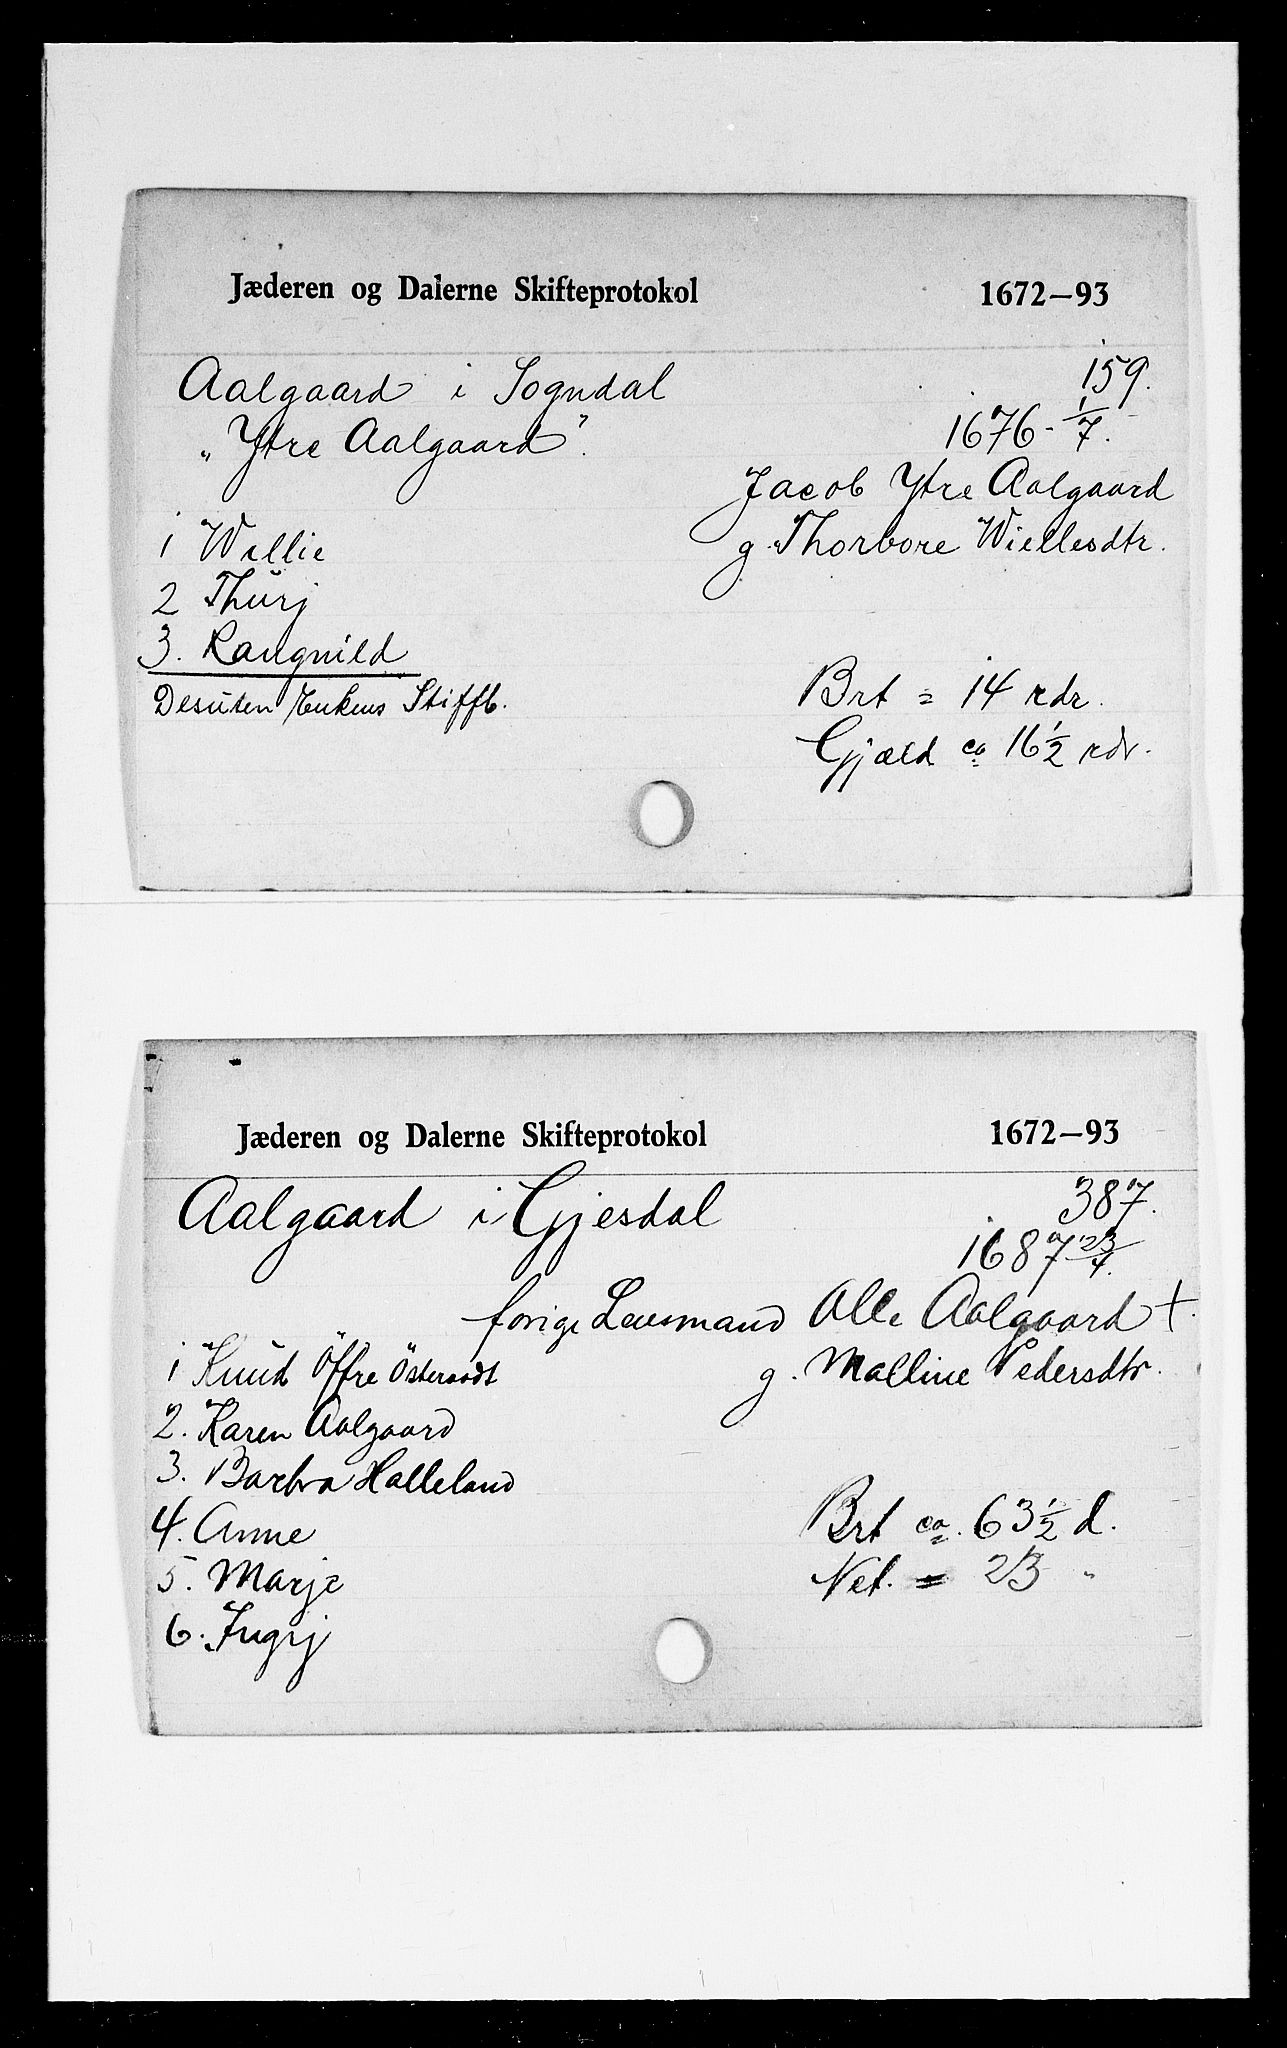 Jæderen og Dalerne Skifteprotokol 1672–93
Aalgaard i Sogndal 159.
„Ytre Aalgaard". 1676 - 1/7.
Jacob Ytre Aalgaard
1 Wellie g. Thorbore Wiellesdtr.
2 Thurj
3. Rangnild
Desuten Enkens Stiffb. Brt = 14 rdr.
Gjæld ca 16 1/2 rdr.
Jæderen og Dalerne Skifteprotokol 1672–93
Aalgaard i Gjesdal 387.
1687 23/4.
forige Lensmand Olle Aalgaard +.
1 Knud Öffre Österaadt g. Malline Pedersdtr.
2. Karen Aalgaard
3. Barbra Halleland
4. Anne Brt ca. 63 1/2 d.
5. Marje Net. = 23 "
6. Ingrj